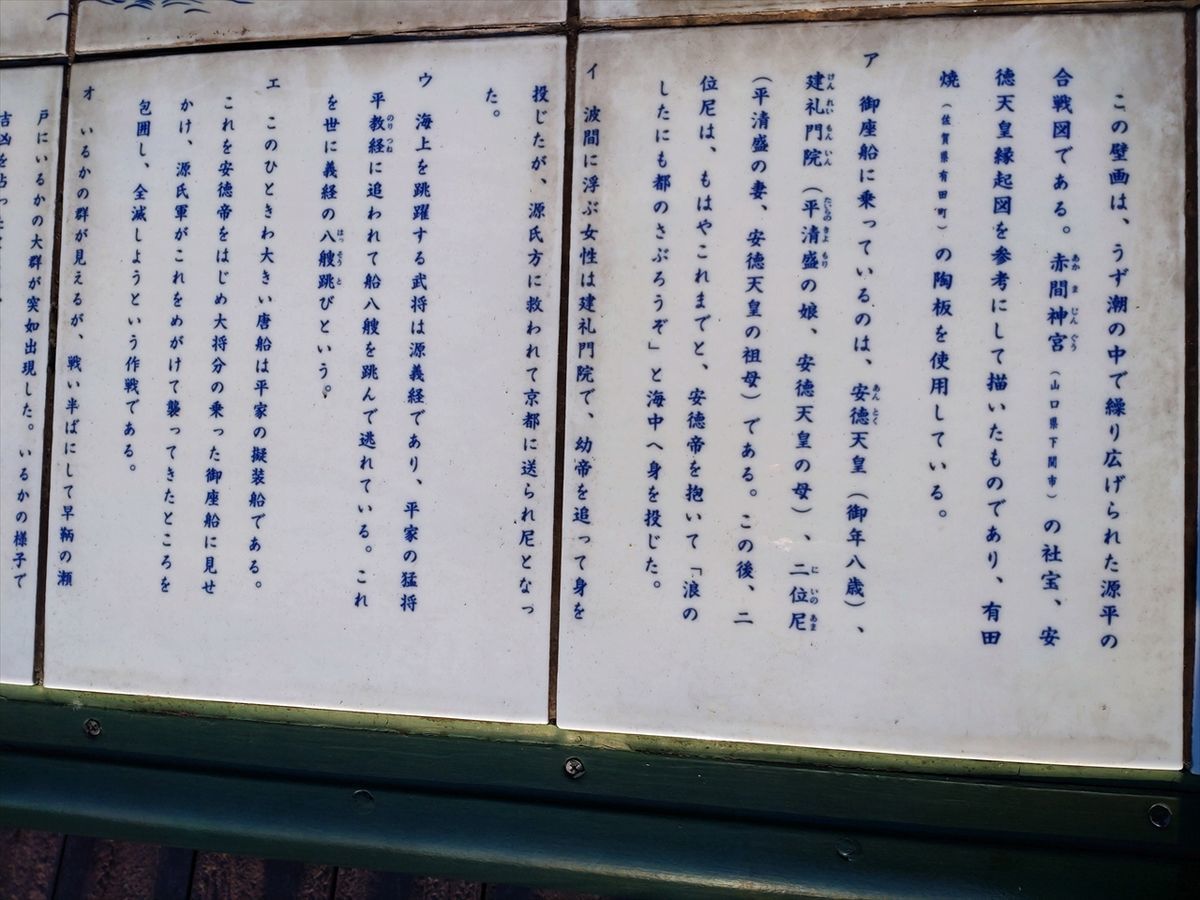 この壁画は、うず潮の中で繰り広げられた源平の
合戦図である。赤間神宮（山口県下関市）の社宝、安
徳天皇縁起図を参考にして描いたものであり、有田
焼（佐賀県有田町）の陶板を使用している。
ア　御座船に乗っているのは、安徳天皇（御年八歳）、
建礼門院（平清盛の娘、安徳天皇の母）、二位尼
（平清盛の妻、安徳天皇の祖母）である。この後、二
位尼は、もはやこれまでと、安徳帝を抱いて「浪の
したにも都のさぶろうぞ」と海中へ身を投じた。
イ　波間に浮ぶ女性は建礼門院で、幼帝を追って身を
投じたが、源氏方に救われて京都に送られ尼となっ
た。
ウ　海上を跳躍する武将は源義経であり、平家の猛将
平教経に追われて船八艘を跳んで逃れている。これ
を世に義経の八艘跳びという。
エ　このひときわ大きい唐船は平家の擬装船である。
これを安徳帝をはじめ大将分の乗った御座船に見せ
かけ、源氏軍がこれをめがけて襲ってきたところを
包囲し、全滅しようという作戦である。
オ　いるかの群が見えるが、戦い半ばにして早鞆の瀬
戸にいるかの大群が突如出現した。いるかの様子で
吉凶を占った